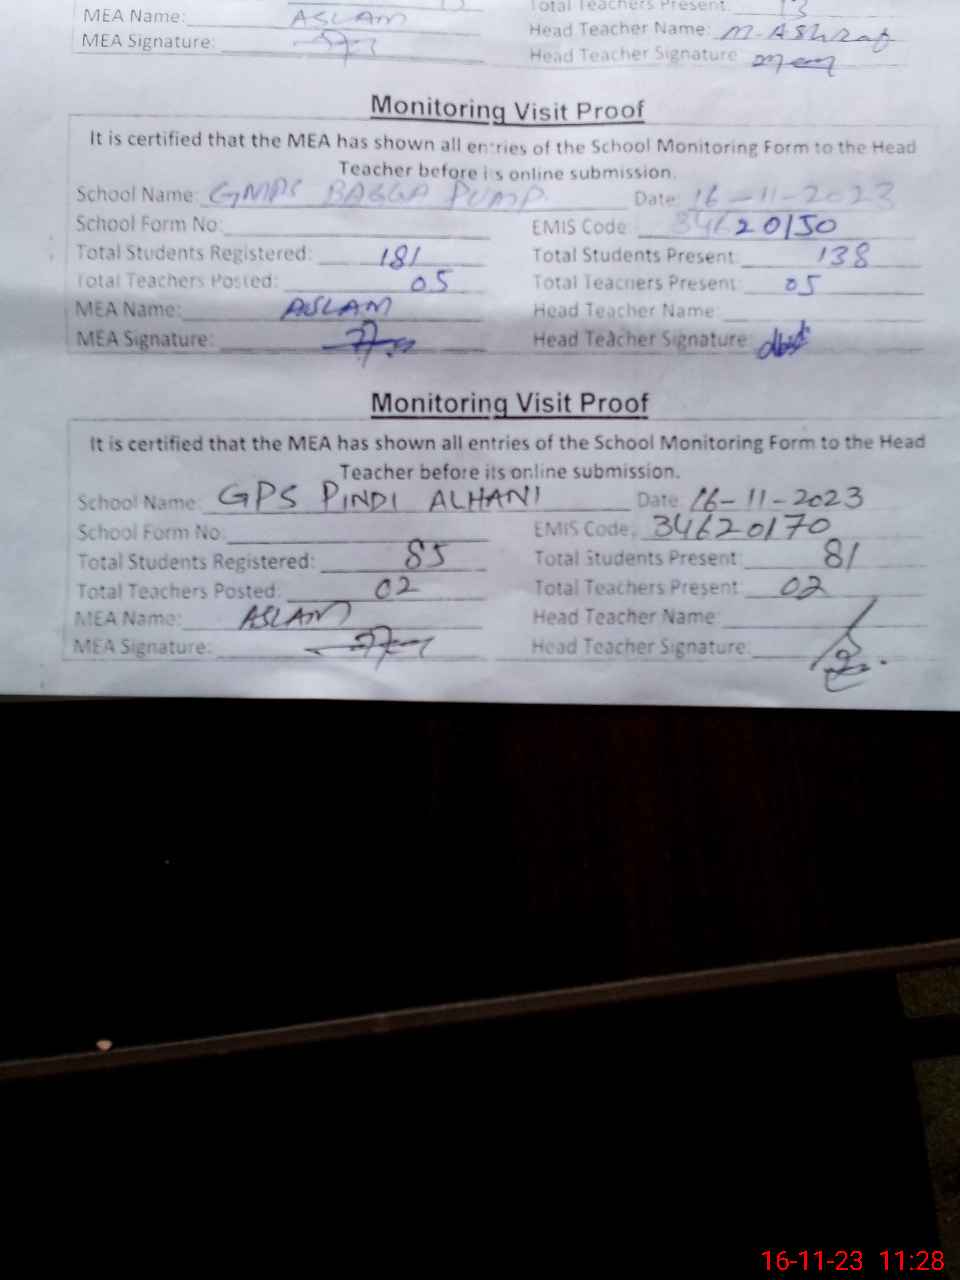 Total Teachers Present: 13
MEA Name: ASLAM Head Teacher Name: M. Ashraf
MEA Signature: Head Teacher Signature
Monitoring Visit Proof
It is certified that the MEA has shown all entries of the School Monitoring Form to the Head
Teacher before its online submission.
School Name: GMPS BAGGA PUMP Date: 16-11-2023
School Form No: EMIS Code: 34620150
Total Students Registered: 181 Total Students Present: 138
Total Teachers Posted: 05 Total Teachers Present: 05
MEA Name: ASLAM Head Teacher Name:
MEA Signature: Head Teacher Signature:
Monitoring Visit Proof
It is certified that the MEA has shown all entries of the School Monitoring Form to the Head
Teacher before its online submission.
School Name: GPS PINDI ALHANI Date: 16-11-2023
School Form No: EMIS Code: 34620170
Total Students Registered: 85 Total Students Present: 81
Total Teachers Posted: 02 Total Teachers Present: 02
MEA Name: ASLAM Head Teacher Name:
MEA Signature: Head Teacher Signature:
16-11-23 11:28